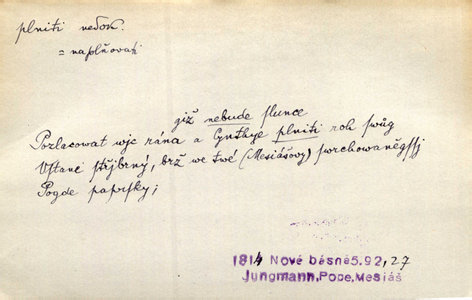 plniti nedok.
= naplňovati
již nebude slunce
Pozlacovat wjc rána a Cynthye plniti roh swůg
Ustane střjbrný, brž we twé (Mesiášovy) swrchowaněgssj
Pogde paprsky;
1814 Nové básně 5.92,27
Jungmann, Pope, Mesiáš